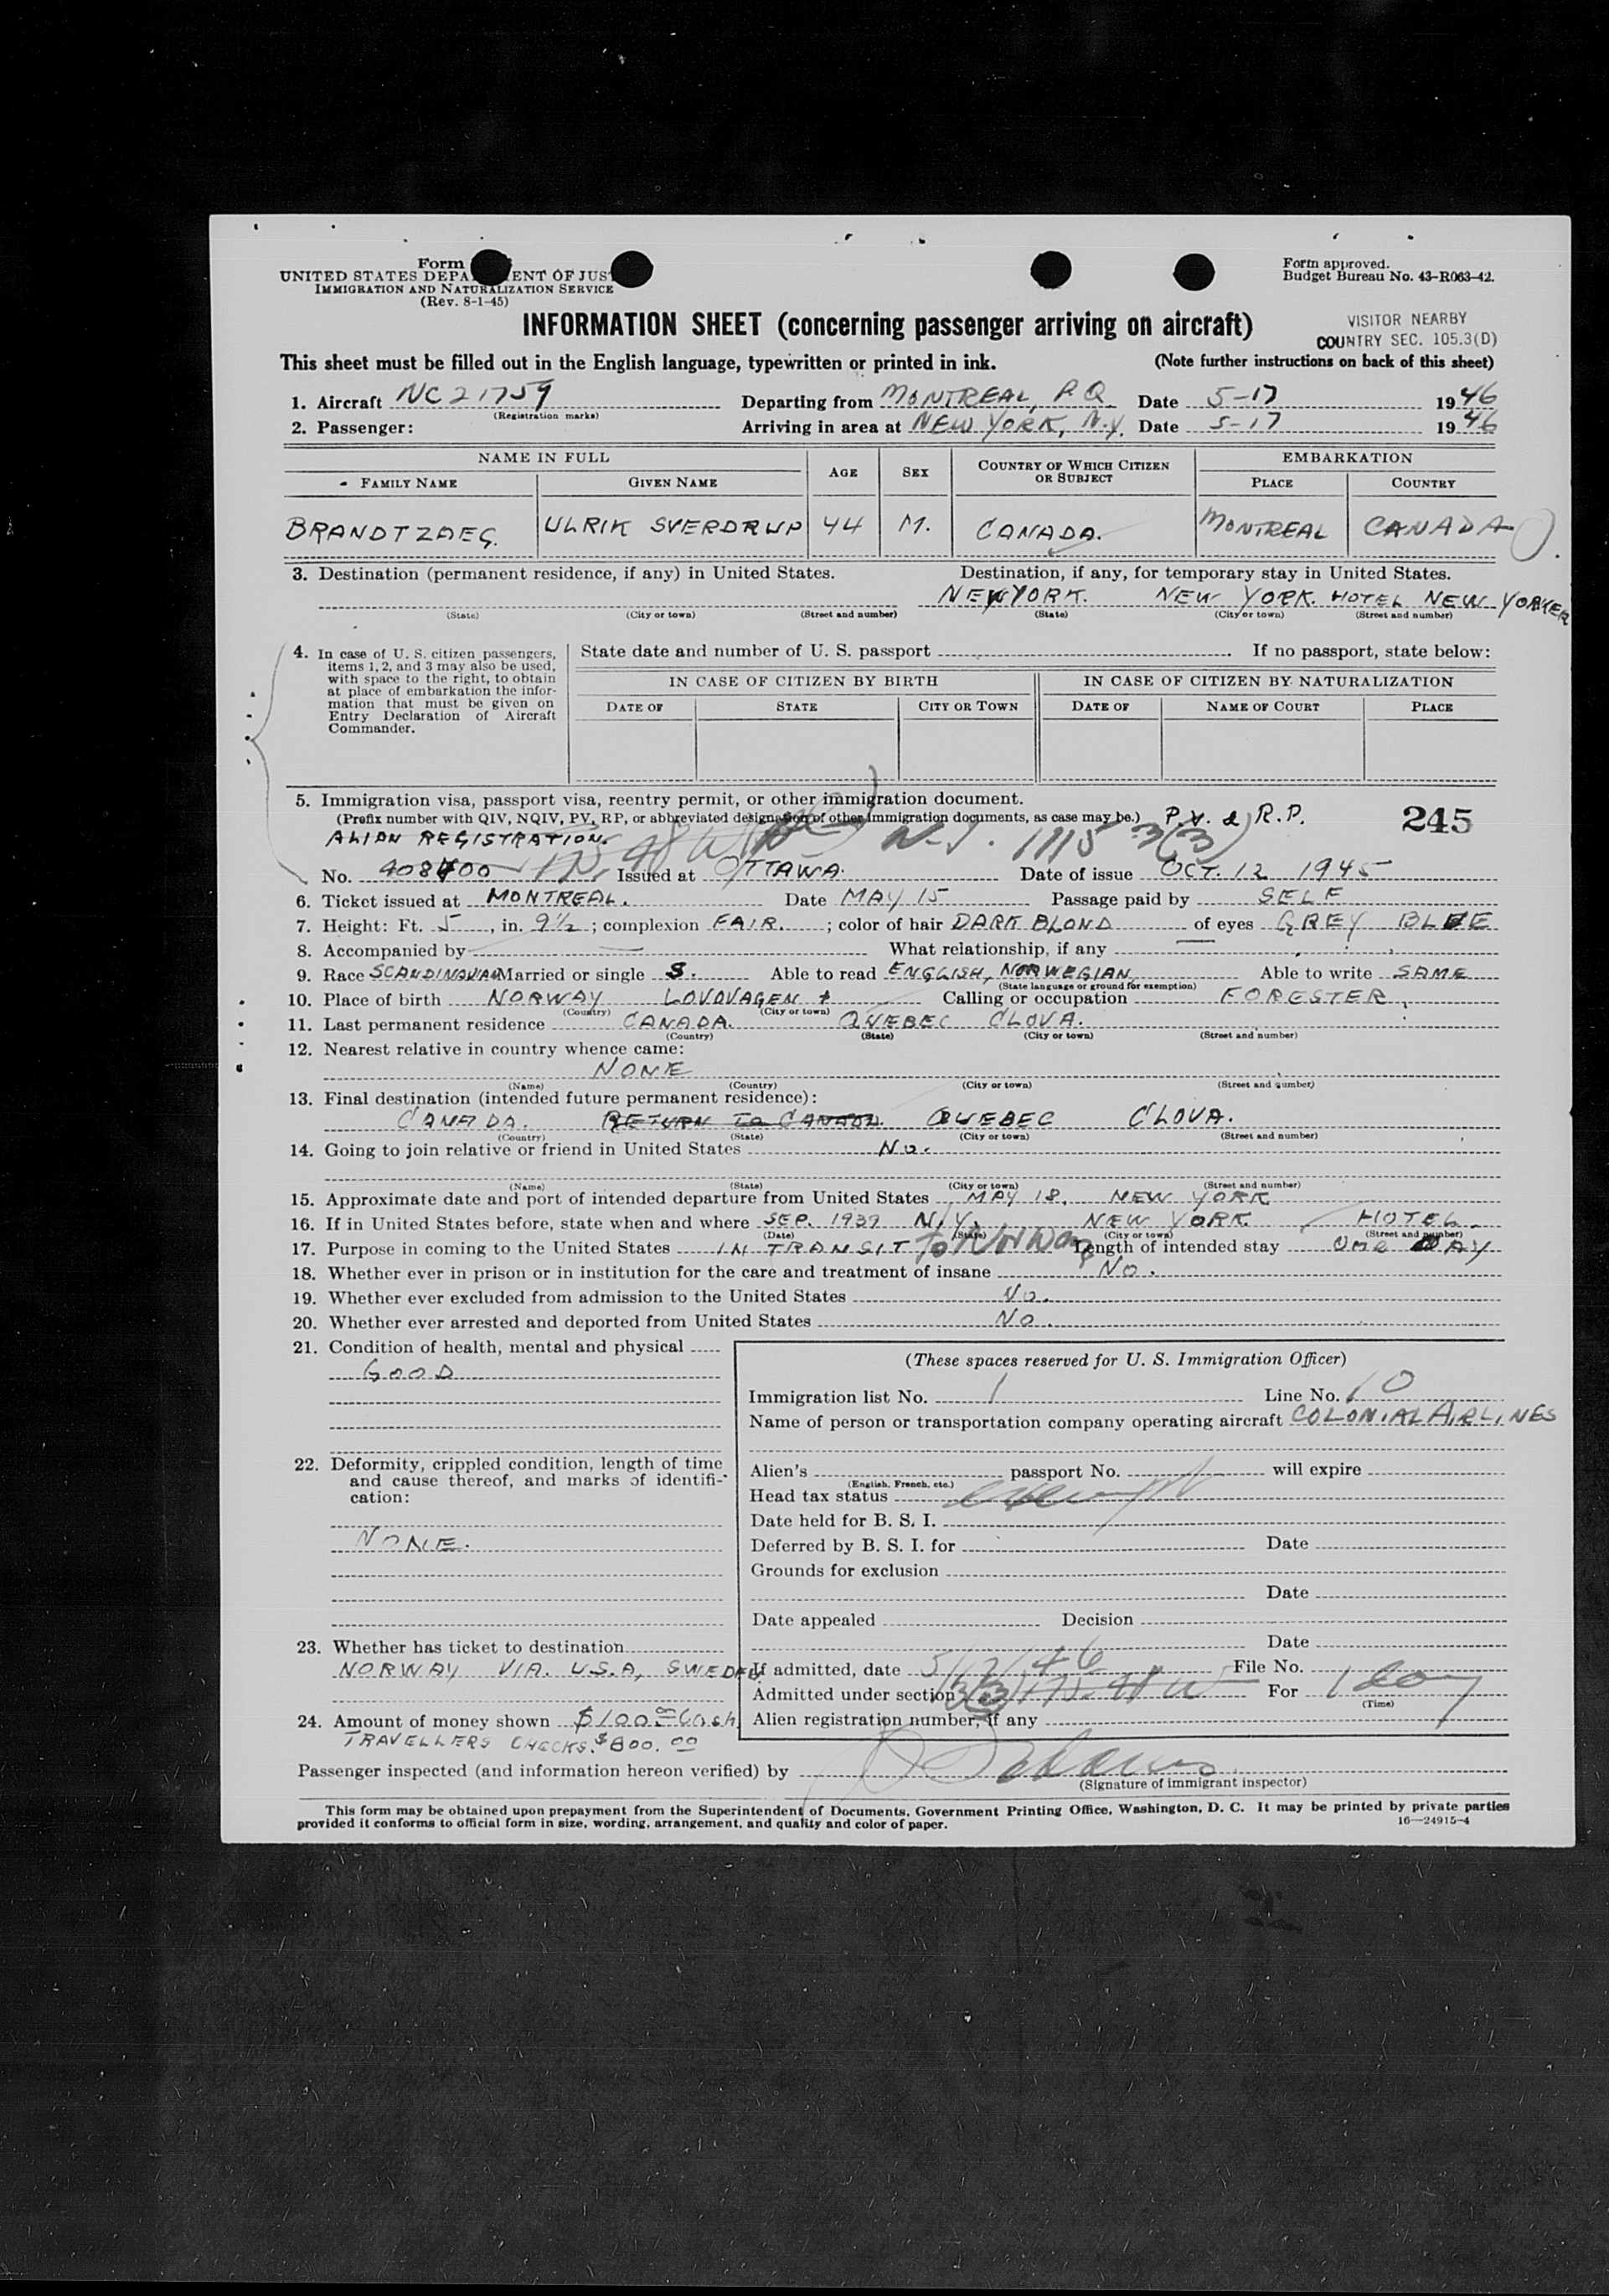 Form
UNITED STATES DEPA ENT OF JUS
IMMIGRATION AND NATURALIZATION SERVICE
(Rev. 8-1-45)
Form approved.
Budget Bureau No. 43-R063-42.
INFORMATION SHEET (concerning passenger arriving on aircraft)
VISITOR NEARBY
COUNTRY SEC. 105.3(D)
This sheet must be filled out in the English language, typewritten or printed in ink. (Note further instructions on back of this sheet)
1. Aircraft NC 21759 Departing from MONTREAL, P.Q. Date 5-17 1946
(Registration marks)
2. Passenger: Arriving in area at NEW YORK, N.Y. Date 5-17 1946
NAME IN FULL AGE SEX COUNTRY OF WHICH CITIZEN OR SUBJECT EMBARKATION
FAMILY NAME GIVEN NAME PLACE COUNTRY
BRANDTZAEG. ULRIK SVERDRUP 44 M. CANADA. MONTREAL CANADA
3. Destination (permanent residence, if any) in United States. Destination, if any, for temporary stay in United States.
NEW YORK. NEW YORK. HOTEL NEW YORKER
(State) (City or town) (Street and number) (State) (City or town) (Street and number)
4. In case of U. S. citizen passengers, items 1, 2, and 3 may also be used, with space to the right, to obtain at place of embarkation the information that must be given on Entry Declaration of Aircraft Commander.
State date and number of U. S. passport If no passport, state below:
IN CASE OF CITIZEN BY BIRTH IN CASE OF CITIZEN BY NATURALIZATION
DATE OF STATE CITY OR TOWN DATE OF NAME OF COURT PLACE
5. Immigration visa, passport visa, reentry permit, or other immigration document.
(Prefix number with QIV, NQIV, PV, RP, or abbreviated designation of other immigration documents, as case may be.) P.V. & R.P. 245
ALIAN REGISTRATION.
No. Issued at OTTAWA. Date of issue OCT. 12 1945
6. Ticket issued at MONTREAL. Date MAY 15 Passage paid by SELF
7. Height: Ft. 5, in. 9½; complexion FAIR.; color of hair DARK BLOND of eyes GREY BLUE
8. Accompanied by What relationship, if any
9. Race SCANDINAVIAN Married or single S. Able to read ENGLISH, NORWEGIAN Able to write SAME
(State language or ground for exemption)
10. Place of birth NORWAY Calling or occupation FORESTER
(Country) (City or town)
11. Last permanent residence CANADA. QUEBEC CLOVA.
(Country) (State) (City or town) (Street and number)
12. Nearest relative in country whence came:
NONE
(Name) (Country) (City or town) (Street and number)
13. Final destination (intended future permanent residence):
CANADA. RETURN TO CANADA QUEBEC CLOVA.
(Country) (State) (City or town) (Street and number)
14. Going to join relative or friend in United States No.
(Name) (State) (City or town) (Street and number)
15. Approximate date and port of intended departure from United States MAY 18. NEW YORK
16. If in United States before, state when and where SEP. 1939 N.Y. NEW YORK HOTEL.
(Date) (State) (City or town) (Street and number)
17. Purpose in coming to the United States IN TRANSIT to Norway Length of intended stay ONE DAY
18. Whether ever in prison or in institution for the care and treatment of insane No.
19. Whether ever excluded from admission to the United States No.
20. Whether ever arrested and deported from United States No.
21. Condition of health, mental and physical
GOOD
22. Deformity, crippled condition, length of time and cause thereof, and marks of identification:
NONE.
23. Whether has ticket to destination
NORWAY VIA. U.S.A, SWEDEN.
24. Amount of money shown $100.00 Cash
TRAVELLERS CHECKS. $800.00
(These spaces reserved for U. S. Immigration Officer)
Immigration list No. 1 Line No. 10
Name of person or transportation company operating aircraft COLONIAL AIRLINES
Alien's passport No. will expire
(English, French, etc.)
Head tax status exempt
Date held for B. S. I.
Deferred by B. S. I. for Date
Grounds for exclusion
Date
Date appealed Decision
Date
If admitted, date File No.
Admitted under section For 1 day
(Time)
Alien registration number, if any
Passenger inspected (and information hereon verified) by
(Signature of immigrant inspector)
This form may be obtained upon prepayment from the Superintendent of Documents, Government Printing Office, Washington, D. C. It may be printed by private parties
provided it conforms to official form in size, wording, arrangement, and quality and color of paper. 16—24915-4